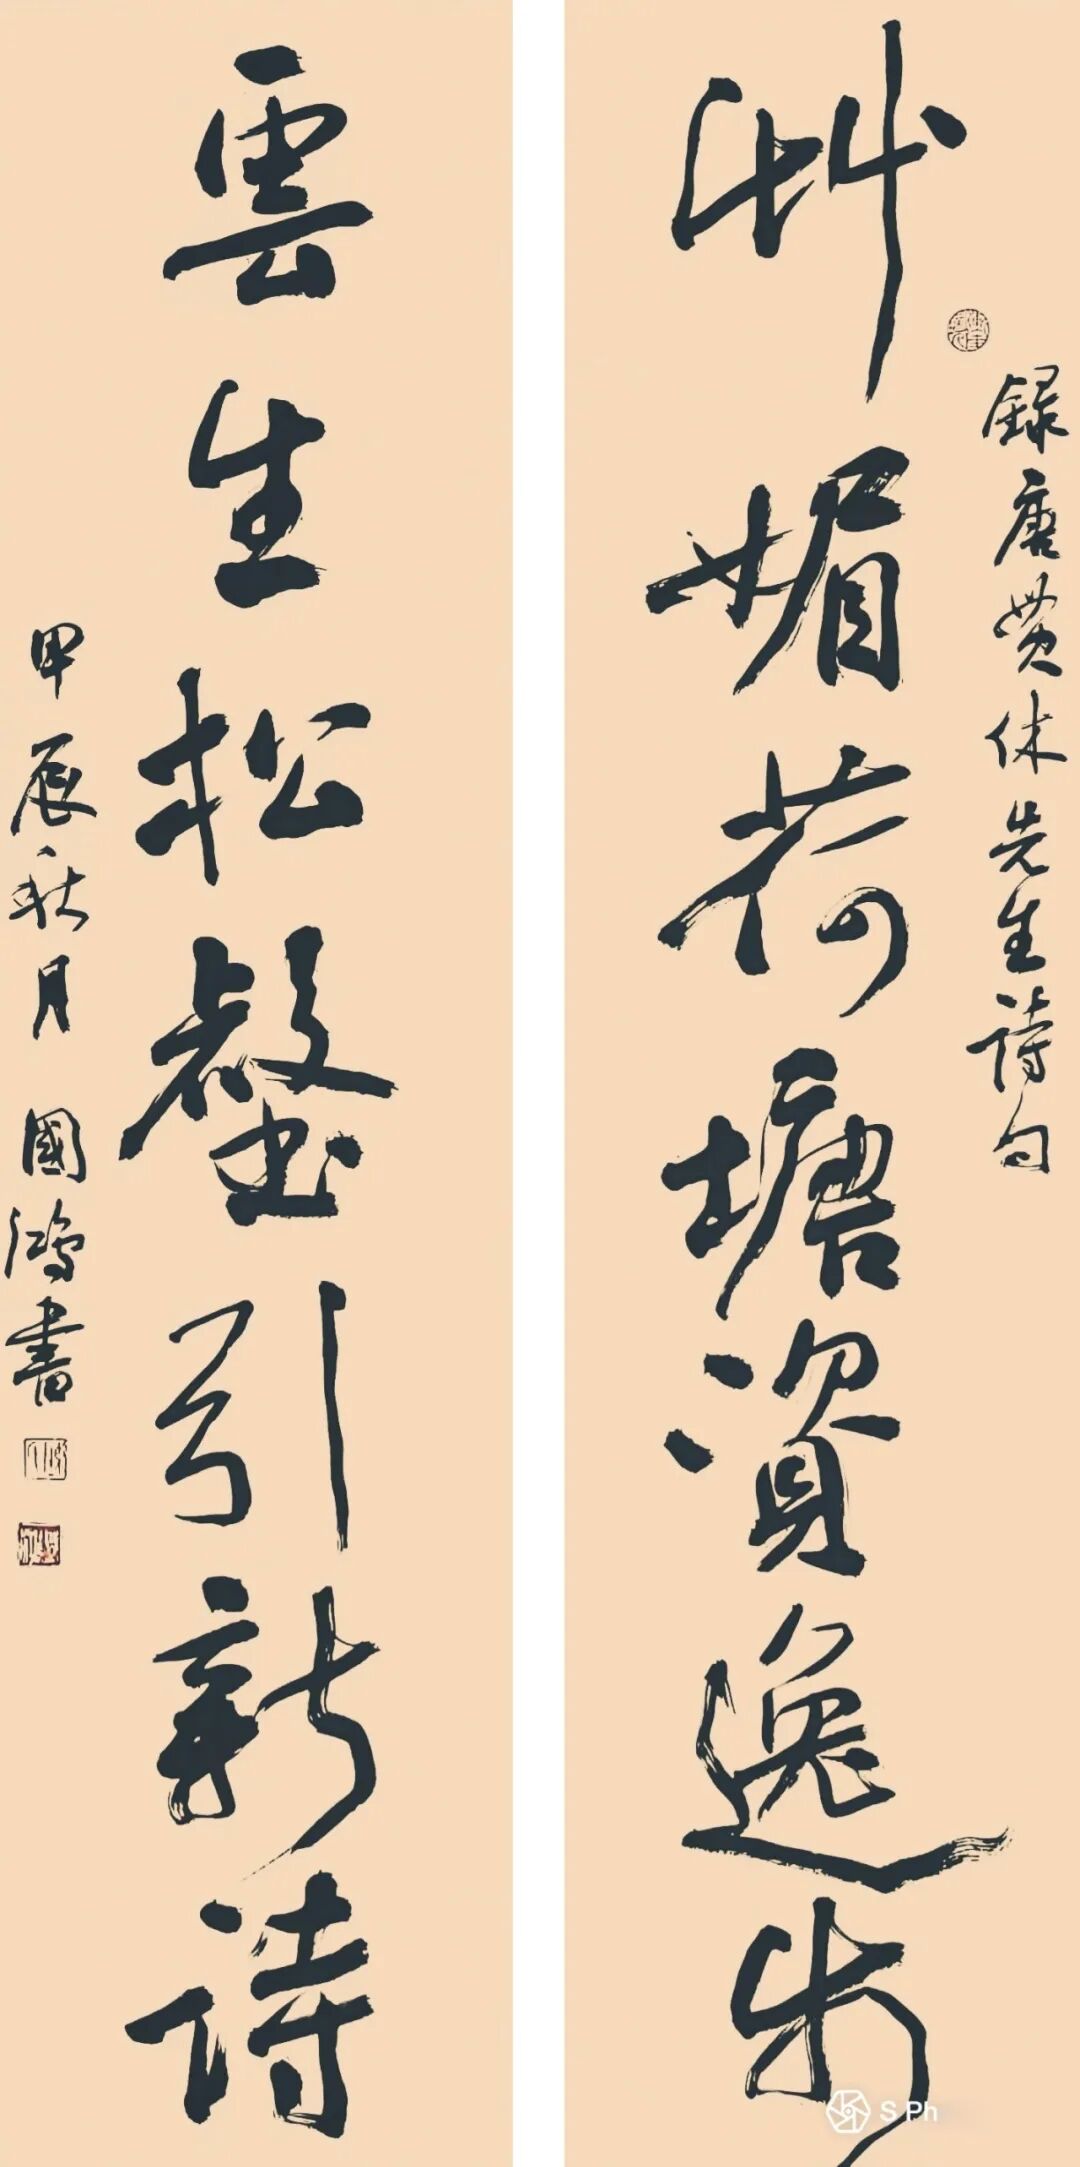 艸媚荷塘資逸步
録唐貫休先生詩句
雲生松壑引新詩
甲辰秋月 國鴻書
S Ph